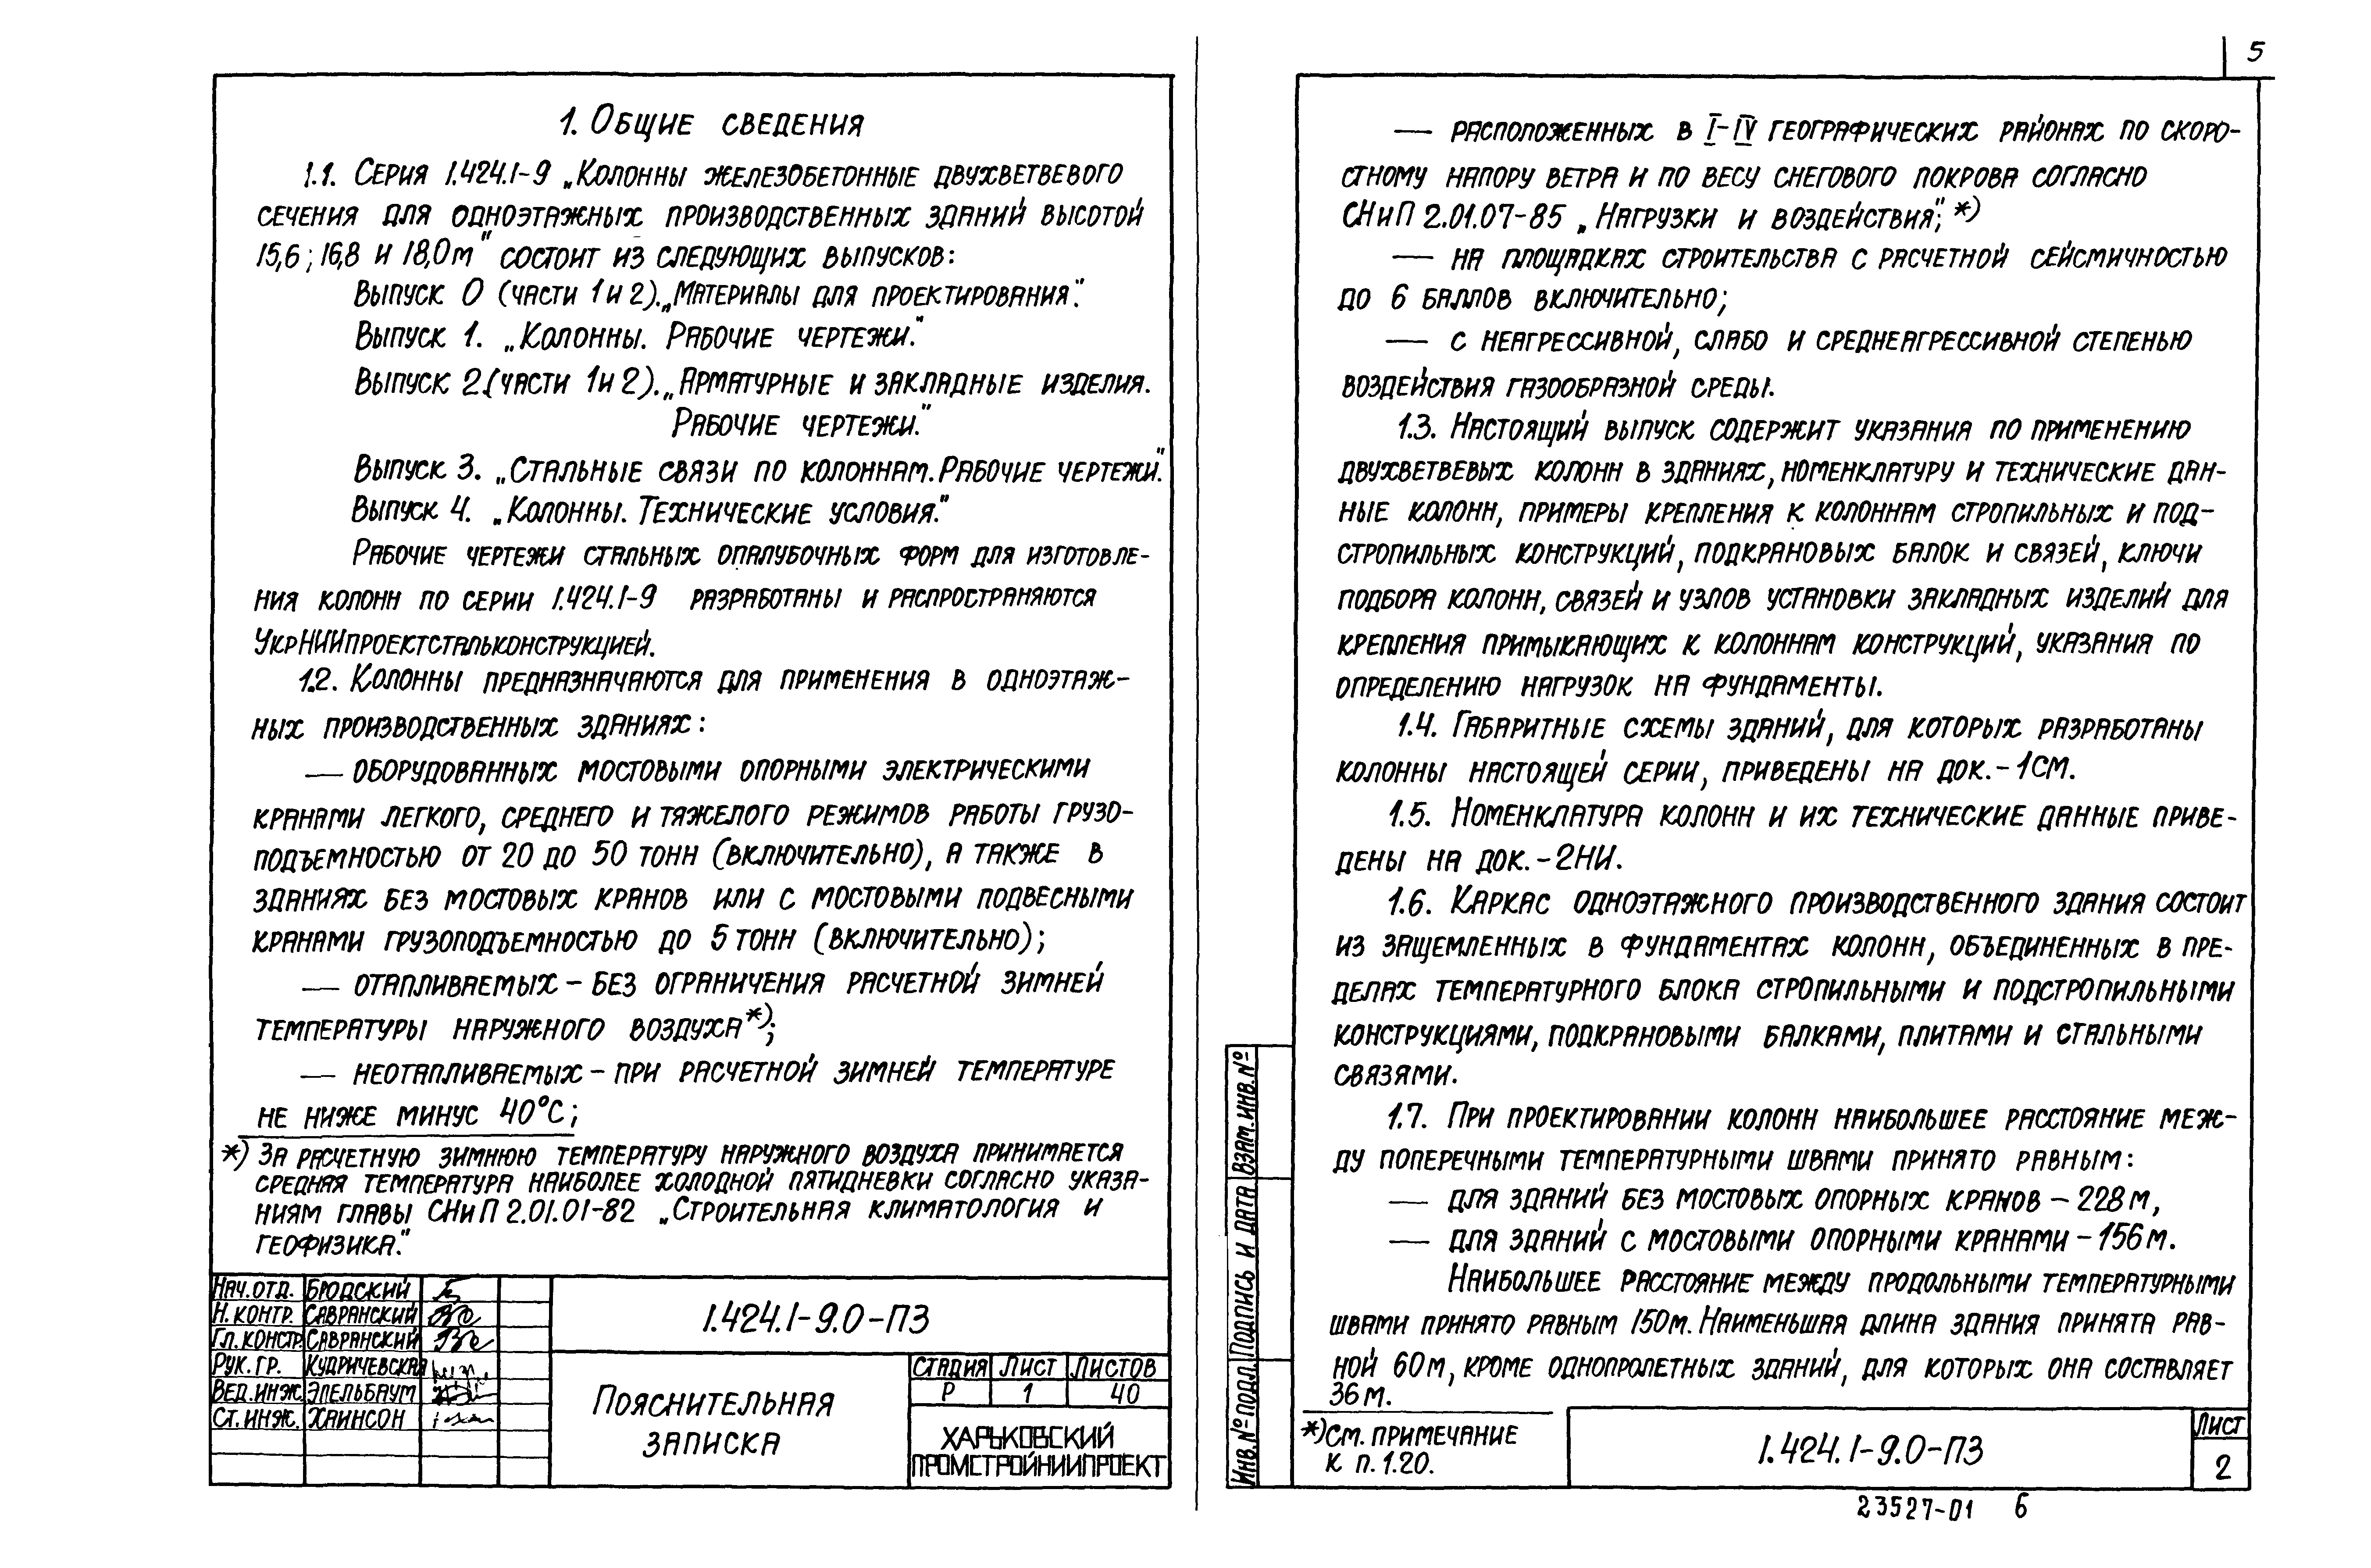 1. Общие сведения
1.1. Серия 1.424.1-9 „Колонны железобетонные двухветвевого
сечения для одноэтажных производственных зданий высотой
15,6; 16,8 и 18,0м" состоит из следующих выпусков:
Выпуск 0 (части 1 и 2). „Материалы для проектирования".
Выпуск 1. „Колонны. Рабочие чертежи."
Выпуск 2 (части 1 и 2). „Арматурные и закладные изделия.
Рабочие чертежи."
Выпуск 3. „Стальные связи по колоннам. Рабочие чертежи".
Выпуск 4. „Колонны. Технические условия."
Рабочие чертежи стальных опалубочных форм для изготовле-
ния колонн по серии 1.424.1-9 разработаны и распространяются
УкрНИИпроектстальконструкцией.
1.2. Колонны предназначаются для применения в одноэтаж-
ных производственных зданиях:
— оборудованных мостовыми опорными электрическими
кранами легкого, среднего и тяжелого режимов работы грузо-
подъемностью от 20 до 50 тонн (включительно), а также в
зданиях без мостовых кранов или с мостовыми подвесными
кранами грузоподъемностью до 5 тонн (включительно);
— отапливаемых – без ограничения расчетной зимней
температуры наружного воздуха*);
— неотапливаемых – при расчетной зимней температуре
не ниже минус 40°С;
*) За расчетную зимнюю температуру наружного воздуха принимается
средняя температура наиболее холодной пятидневки согласно указа-
ниям главы СНиП 2.01.01-82 „Строительная климатология и
геофизика."
Нач.отд. Бродский
Н.контр. Савранский
Гл.констр. Савранский
Рук. гр. Кудричевская
Вед.инж. Эпельбаум
Ст.инж. Хаинсон
1.424.1-9.0-ПЗ
Пояснительная
записка
Стадия Лист Листов
Р 1 40
Харьковский
Промстройниипроект
5
— расположенных в I-IV географических районах по скоро-
стному напору ветра и по весу снегового покрова согласно
СНиП 2.01.07-85 „Нагрузки и воздействия"; *)
— на площадках строительства с расчетной сейсмичностью
до 6 баллов включительно;
— с неагрессивной, слабо и среднеагрессивной степенью
воздействия газообразной среды.
1.3. Настоящий выпуск содержит указания по применению
двухветвевых колонн в зданиях, номенклатуру и технические дан-
ные колонн, примеры крепления к колоннам стропильных и под-
стропильных конструкций, подкрановых балок и связей, ключи
подбора колонн, связей и узлов установки закладных изделий для
крепления примыкающих к колоннам конструкций, указания по
определению нагрузок на фундаменты.
1.4. Габаритные схемы зданий, для которых разработаны
колонны настоящей серии, приведены на док.-1СМ.
1.5. Номенклатура колонн и их технические данные приве-
дены на док.-2НИ.
1.6. Каркас одноэтажного производственного здания состоит
из защемленных в фундаментах колонн, объединенных в пре-
делах температурного блока стропильными и подстропильными
конструкциями, подкрановыми балками, плитами и стальными
связями.
1.7. При проектировании колонн наибольшее расстояние меж-
ду поперечными температурными швами принято равным:
— для зданий без мостовых опорных кранов – 228м,
— для зданий с мостовыми опорными кранами – 156м.
Наибольшее расстояние между продольными температурными
швами принято равным 150м. Наименьшая длина здания принята рав-
ной 60м, кроме однопролетных зданий, для которых она составляет
36м.
*) См. примечание
к п. 1.20.
1.424.1-9.0-ПЗ
Лист
2
Инв.№ подл. Подпись и дата Взам.инв.№
23527-01 6